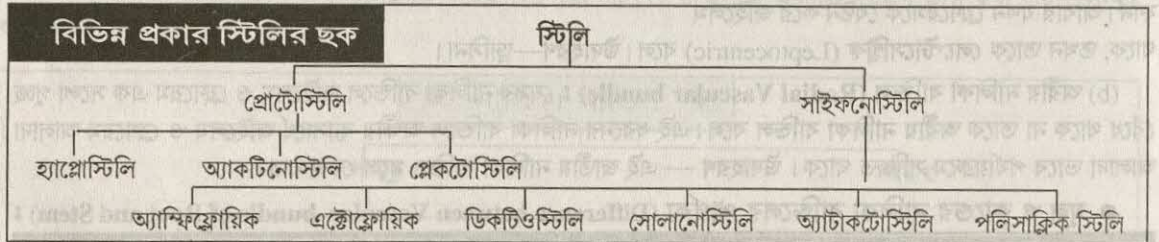 বিভিন্ন প্রকার স্টিলির ছক
স্টিলি
প্রোটোস্টিলি সাইফনোস্টিলি
হ্যাপ্লোস্টিলি অ্যাকটিনোস্টিলি প্লেকটোস্টিলি
অ্যাম্ফিফ্লোয়িক এক্টোফ্লোয়িক ডিকটিওস্টিলি সোলানোস্টিলি অ্যাটাকটোস্টিলি পলিসাক্লিক স্টিলি